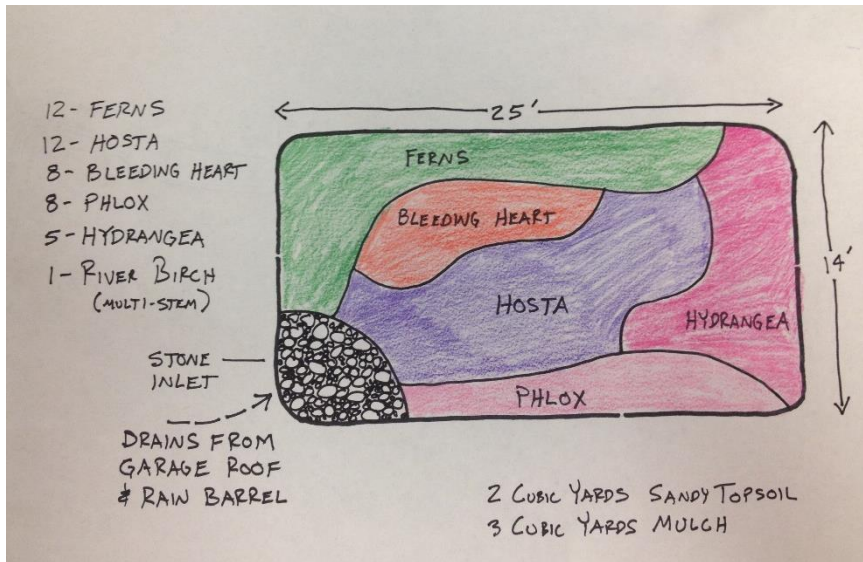 12- FERNS
12- HOSTA
8- BLEEDING HEART
8- PHLOX
5- HYDRANGEA
1- RIVER BIRCH
(MULTI-STEM)
STONE
INLET
DRAINS FROM
GARAGE ROOF
& RAIN BARREL
25'
FERNS
BLEEDING HEART
HOSTA
HYDRANGEA
PHLOX
14'
2 CUBIC YARDS SANDY TOPSOIL
3 CUBIC YARDS MULCH